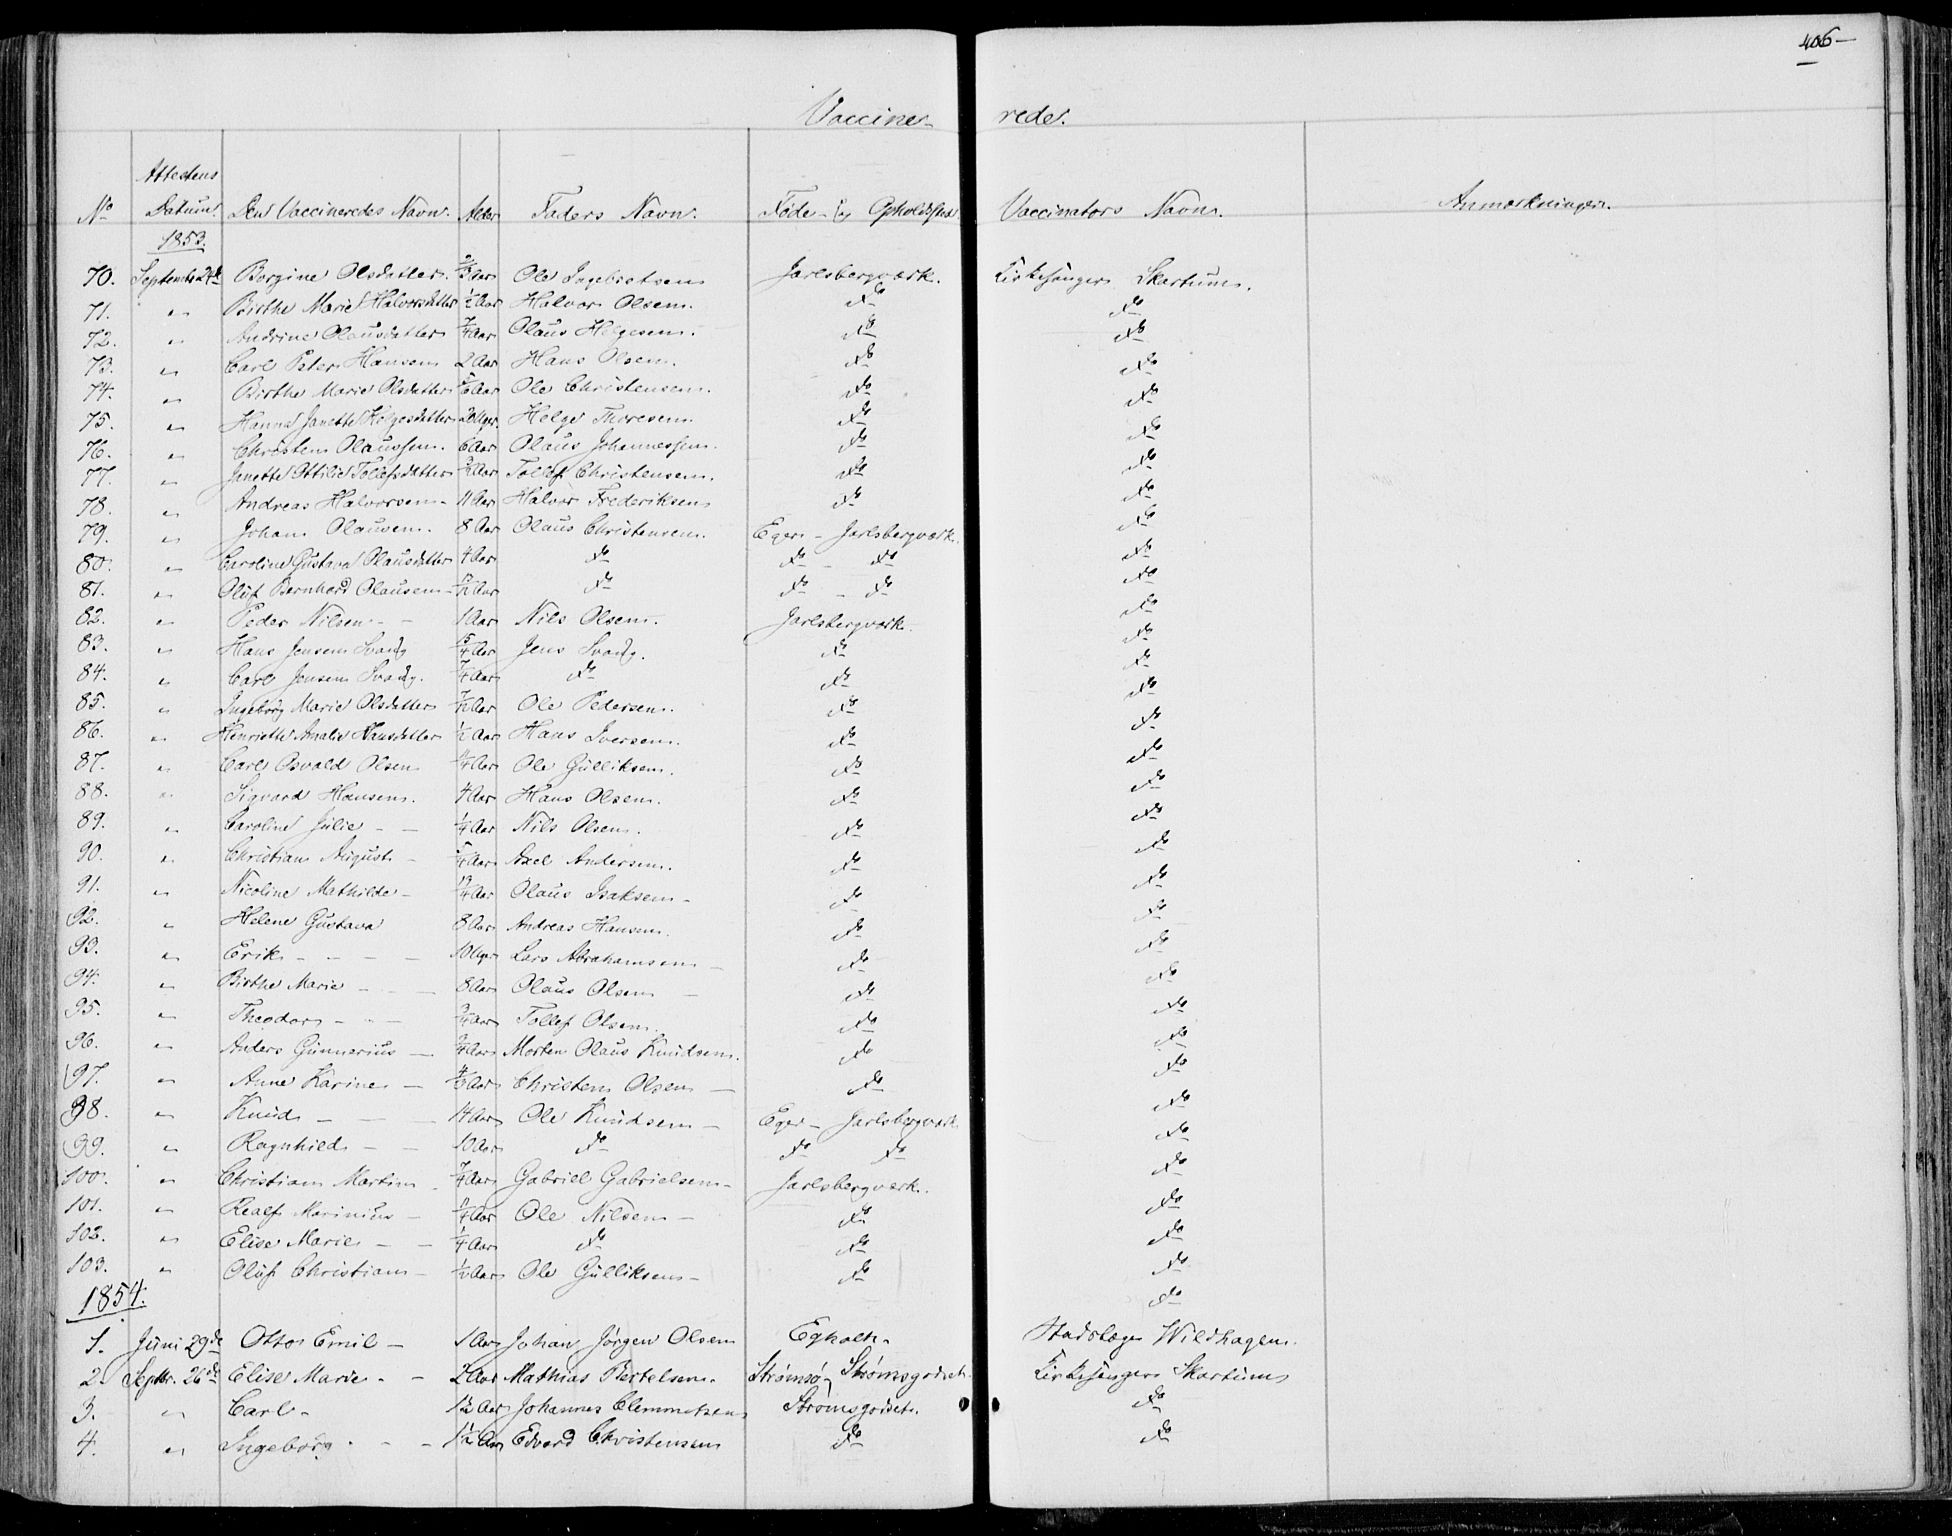 406
Vaccinerede.
No Attestens Datum. Den Vaccineredes Navn. Alder Faders Navn. Føde- og Opholdssted. Vaccinators Navn. Anmærkninger.
1853.
70. September 24de Borgine Olsdatter. Aar Ole Ingebretsen Jarlsbergværk. Kirkesanger Skartum.
71. " Birthe Marie Halvorsdatter 1/2 Aar Halvor Olsen. do do
72. " Andrine Olausdatter 7/4 Aar Olaus Helgesen. do do
73. " Carl Peter Hansen 2 Aar Hans Olsen. do do
74. " Birthe Marie Olsdatter Aar Ole Christensen. do do
75. " Hanna Janette Helgesdatter 20 Uger. Helge Thoresen. do do
76. " Christen Olaussen. 6 Aar Olaus Johannessen. do do
77. " Janette Ottilie Tollefsdatter Aar Tollef Christensen. do do
78. " Andreas Halvorsen - 11 Aar Halvor Frederiksen do do
79. " Johan Olausen. 8 Aar Olaus Christensen. Eger - Jarlsbergværk. do
80. " Caroline Gustava Olausdatter 4 Aar do do - do do
81. " Oluf Bernhard Olausen - Aar do do - do do
82. " Peder Nilsen - - 1 Aar Nils Olsen. Jarlsbergværk. do
83. " Hans Jensen Svang 15/4 Aar Jens Svang. do do
84. " Carl Jensen Svang. 7/4 Aar do do do
85. " Ingeborg Marie Olsdatter 7/12 Aar Ole Pedersen. do do
86. " Henriette Amalie Hansdatter 1/2 Aar Hans Iversen. do do
87. " Carl Osvald Olsen Aar Ole Gulliksen. do do
88. " Sigvard Hansen. 4 Aar Hans Olsen. do do
89. " Caroline Julie - - 1/4 Aar Nils Olsen. do do
90. " Christian August - 5/4 Aar Axel Andersen. do do
91. " Nicoline Mathilde - Aar Olaus Isaksen - do do
92. " Helene Gustava 8 Aar Andreas Hansen. do do
93. " Erik - - - - 10 Uger Lars Abrahamsen - do do
94. " Birthe Marie - - - 8 Aar Olaus Olsen - do do
95. " Theodor - - - 3/4 Aar Tollef Olsen. do do
96. " Anders Gunnerius - Aar Morten Olaus Knudsen. do do
97. " Anne Karine - Aar Christen Olsen - do do
98. " Knud - - - 14 Aar Ole Knudsen - Eger - Jarlsbergværk do
99. " Ragnhild - - 10 Aar do do do do
100. " Christian Martin - 7/4 Aar Gabriel Gabrielsen - Jarlsbergværk. do
101. " Realf Marinius - Aar Ole Nilsen - do do
102. " Elise Marie - - 1/4 Aar do do do
103. " Oluf Christian - 1/2 Aar Ole Gulliksen - do do
1854. do
1. Juni 29de Otto Emil - 1 Aar Johan Jørgen Olsen Egholt. Stadslæge Wildhagen.
2. Septbr. 26de Elise Marie - - 2 Aar Mathias Bertelsen. Strømsø - Strømsgodset. Kirkesanger Skartum
3. " Carl - 1 1/2 Aar Johannes Clemmetsen Strømsgodset. do
4. " Ingeborg - - - 1 1/2 Aar Edvard Christensen do do